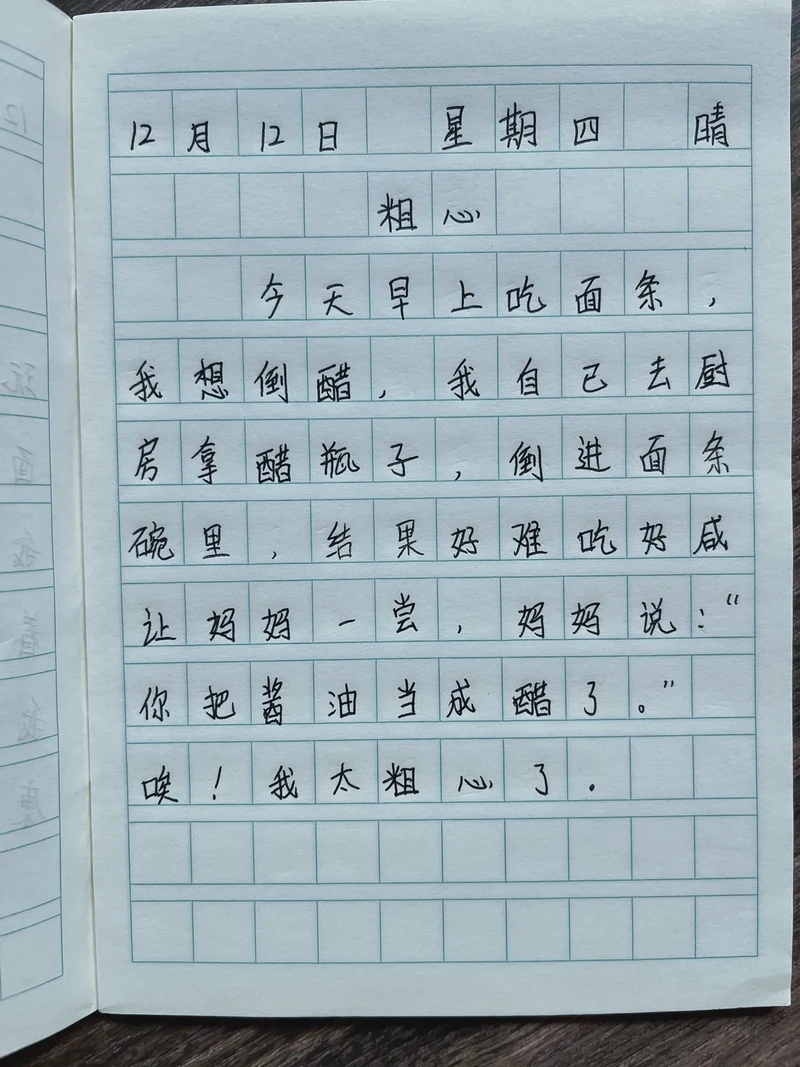 12月12日 星期四 晴
粗心
今天早上吃面条，
我想倒醋，我自己去厨
房拿醋瓶子，倒进面条
碗里，结果好难吃好咸
让妈妈一尝，妈妈说：“
你把酱油当成醋了。”
唉！我太粗心了.